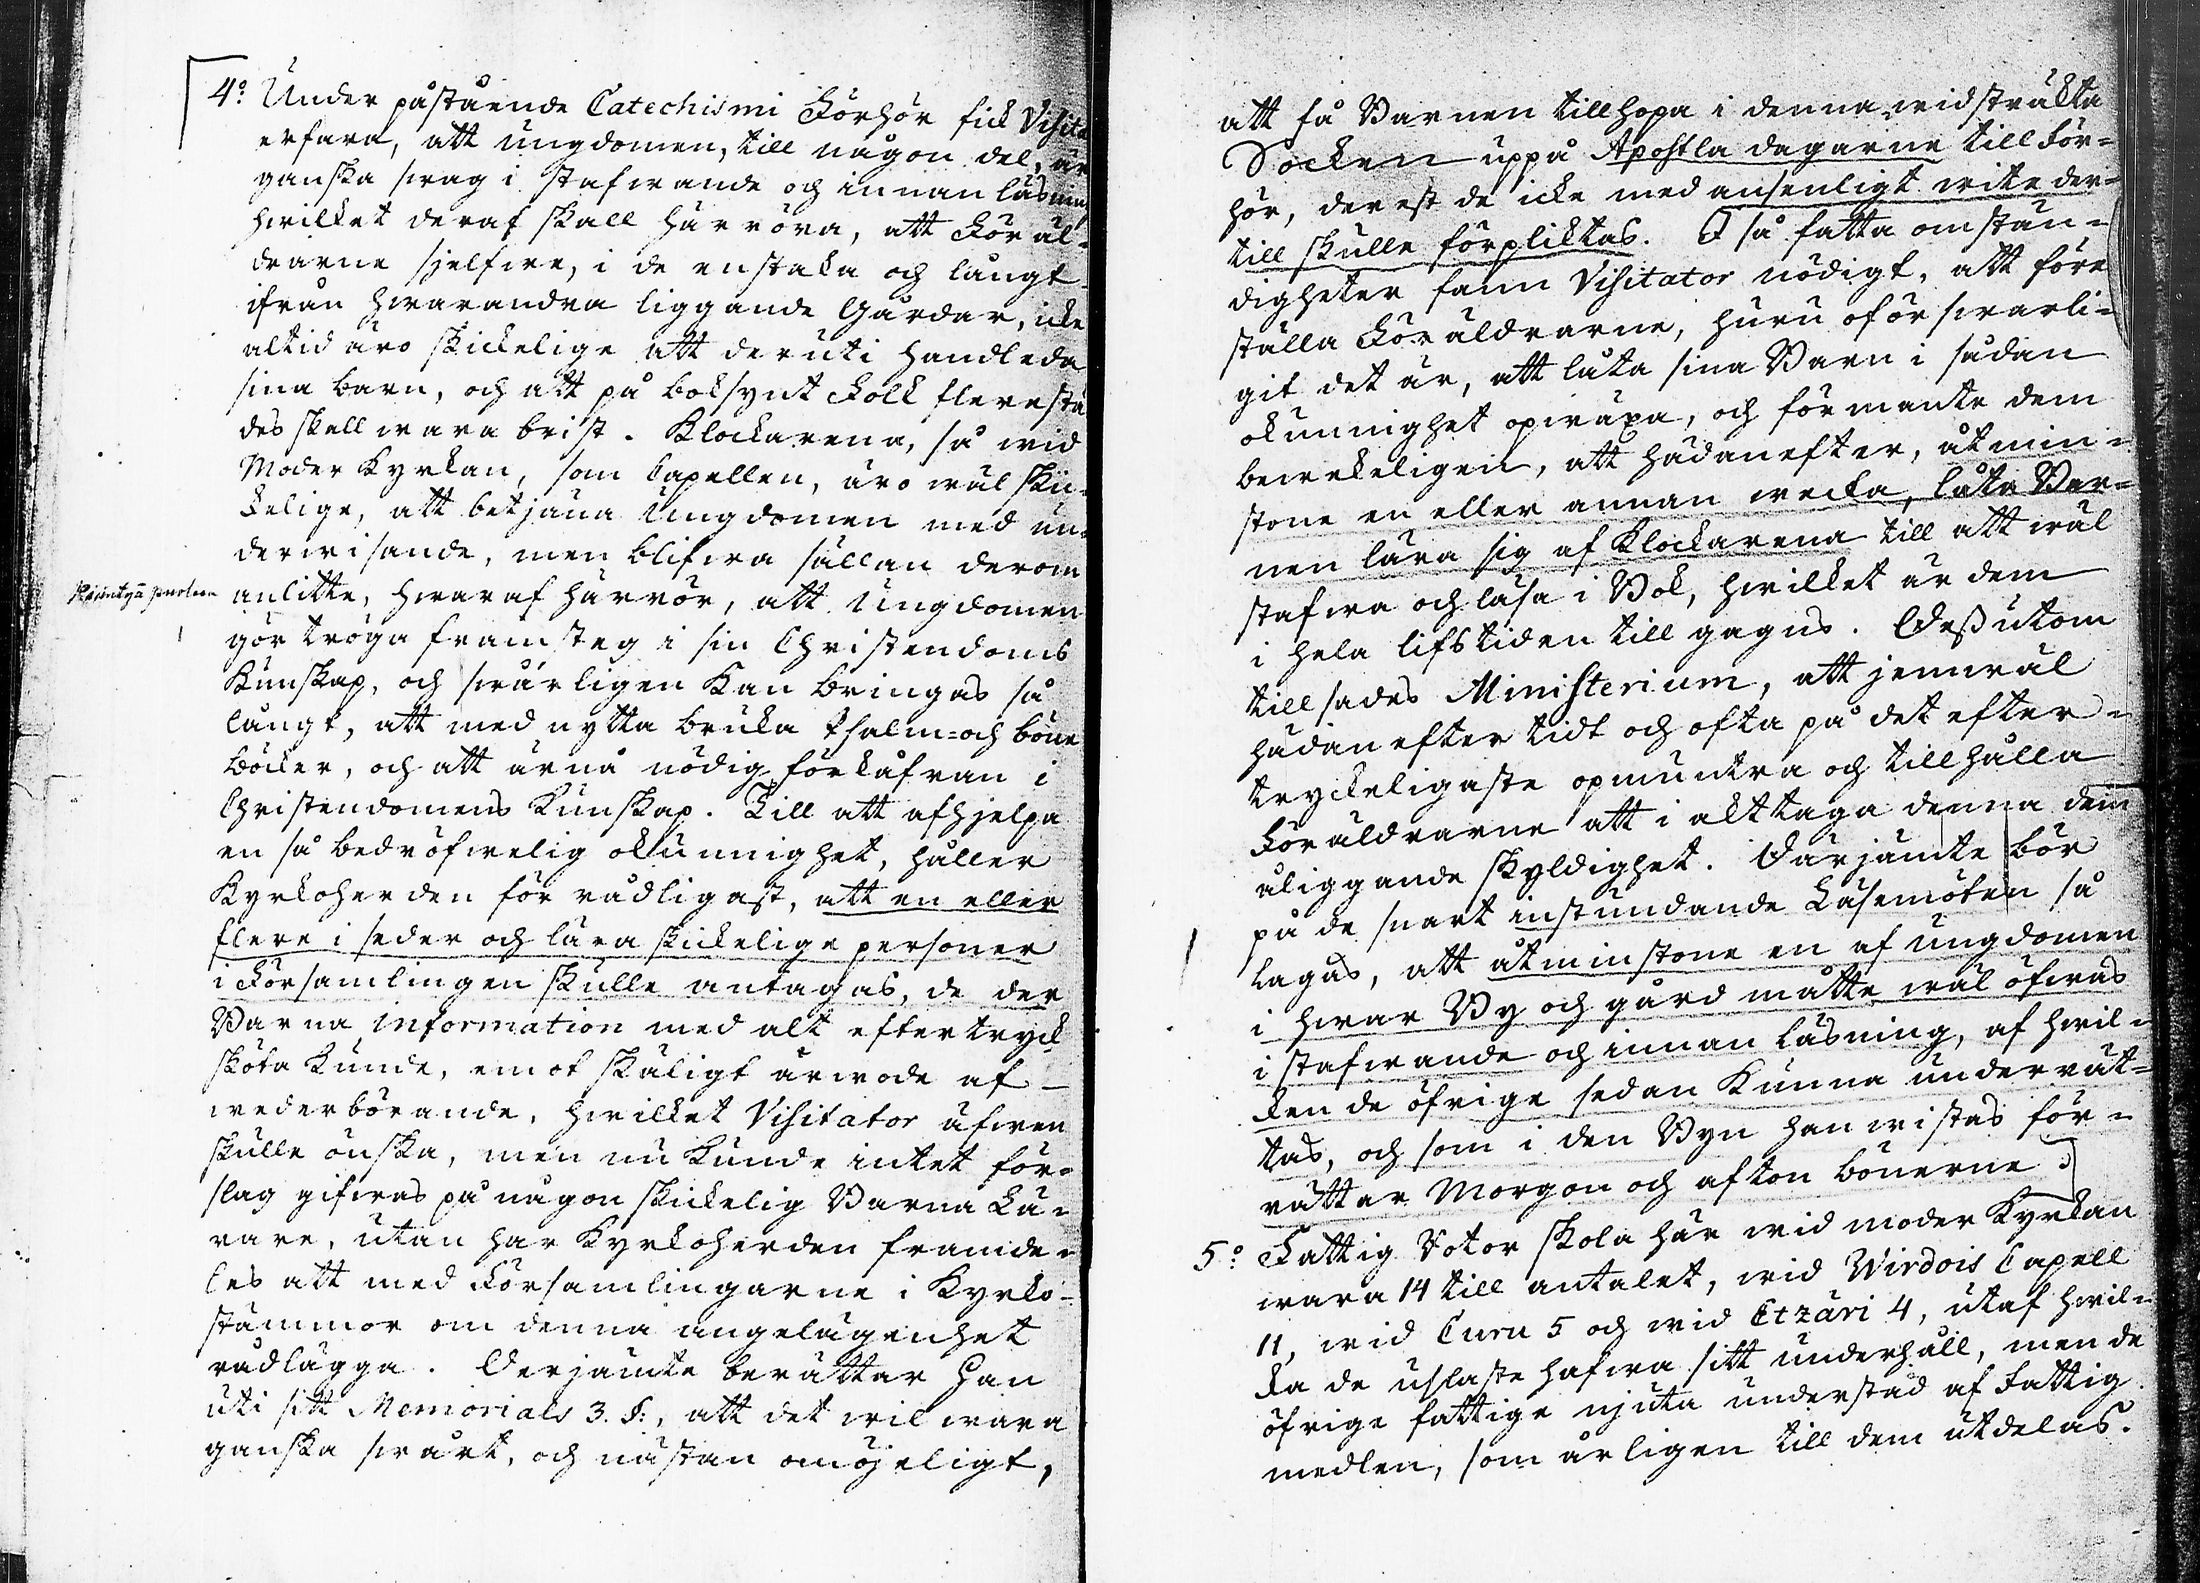 4:o Under påstående Catechismi Förhör fick Visita
erfara, att ungdomen, till någon del, är
ganska swag i stafwande och innan läsning
hwilket deraf skall härröra, att Föräl-
drarne sjelfwe, i de enstaka och långt
ifrån hwarandra liggande Gårdar, icke
altid äro skickelige att deruti handleda
sina barn, och att på boksynt Folk flerestä
des skall wara brist. Klockarena, så wid
Moder Kyrkan, som Capellen, äro wäl skic-
kelige, att betjäna Ungdomen med un-
derwisande, men blifwa sällan derom
anlitte, hwaraf härrör, att Ungdomen
gör tröga framsteg i sin Christendoms
Kunskap, och swårligen kan bringas så
långt, att med nytta bruka Psalm- och böne
böcker, och att ärnå nödig förkåfran i
Christendomens Kunskap. Till att afhjelpa
en så bedröfwelig okunnighet, håller
Kyrkoherden för rådligast, att en eller
flere i seder och lära skickelige personer
i Församlingen skulle antagas, de der
Barna information med alt eftertryck
sköta kunde, emot skäligt arwode af
wederbörande, hwilket Visitator äfwen
skulle önska, men nu kunde intet för-
slag gifwas på någon skickelig Barna Lä-
rare, utan har Kyrkoherden framde-
les att med Församlingarne i Kyrko-
stämmor om denna angelägenhet
rådlägga. Derjämte berättar Han
uti sitt Memorials 3. §:, att det wil wara
ganska swårt, och nästan omöjeligt,
att få Barnen tillhopa i denna widsträkta
Socken uppå Apostla dagarne till För-
hör, derest de icke med ansenligt wite der-
till skulle förpliktas. I så fatta omstän-
digheter fann Visitator nödigt, att före
ställa Föräldrarne, huru oförswarli-
git det är, att låta sina Barn i sådan
okunnighet opwäxa, och förmante dem
bewekeligen, att hädanefter, åtmin-
stone en eller annan wecka, låta Bar-
nen lära sig af Klockarena till att wäl
stafwa och läsa i Bok, hwilket är dem
i hela lifstiden till gagns. Dessutom
tillsades Ministerium, att jemwäl
hädanefter tidt och ofta på det efter-
tryckeligaste opmuntra och tillhålla
Föräldrarne att i akttaga denna dem
åliggande skyldighet. Därjämte bör
på de snart instundande Läsemöten så
lagas, att åtminstone en af ungdomen
i hwar By och gård måtte wäl öfwas
i stafwande och innan läsning, af hwil-
ken de öfrige sedan kunna underrät-
tas, och som i den Byn han wistas för-
rättar Morgon och afton bönerne.
5:o Fattig Rotor skola här wid moder Kyrkan
wara 14 till antalet, wid Wirdois Capell
11, wid Curu 5 och wid Etzäri 4, utaf hwil-
ka de uslaste hafwa sitt underhåll, men de
öfrige fattige njuta understöd af Fattig
medlen, som årligen till dem utdelas.